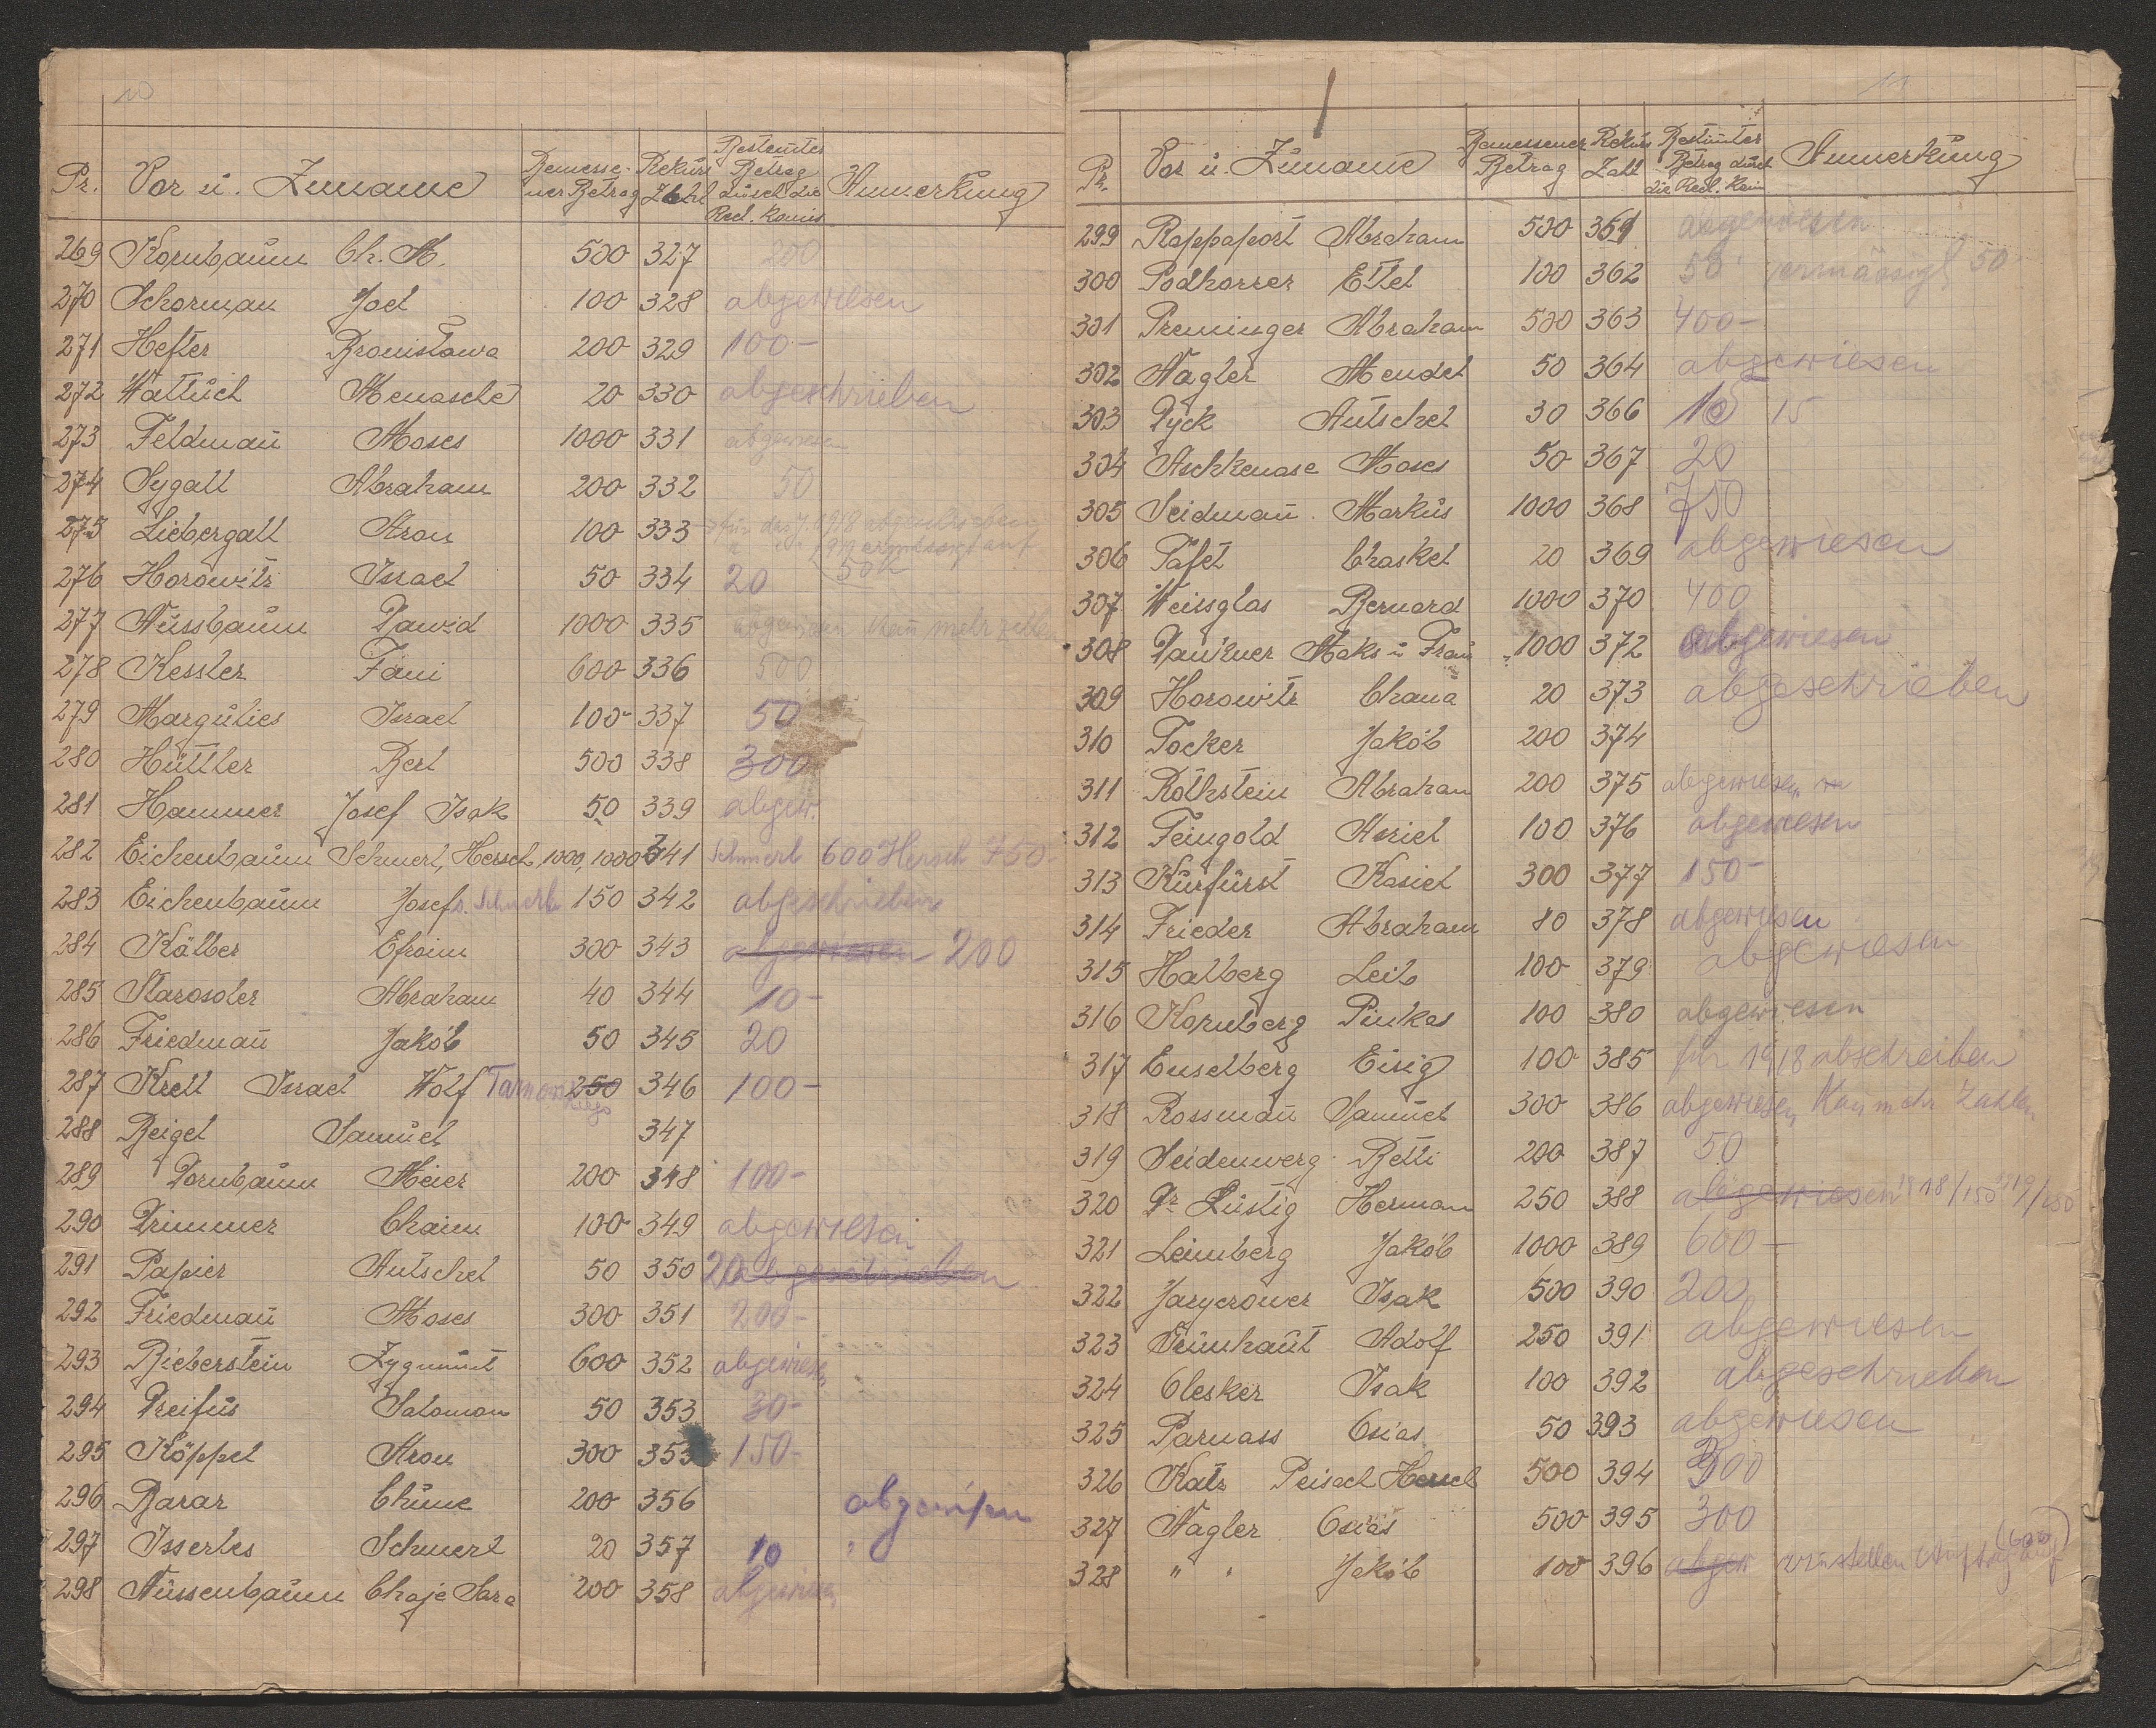 10
Pr. Vor u. Zuname Bemesse- ner Betrag Rekurs Zahl Bestimter Betrag durch die Recl. Komis Anmerkung
269 Kornbaum Ch. M. 500 327 200
270 Schorman Joel 100 328 abgewiesen
271 Hefter Bronisława 200 329 100-
272 Wattuch Menasche 20 330 abgeschrieben
273 Feldmañ Moses 1000 331 abgewiesen
274 Sygall Abraham 200 332 50
275 Liebergall Aron 100 333 für das J. 1918 abgeschrieben
1919 ermässigt auf
50 K
276 Horowitz Israel 50 334 20
277 Nussbaum Dawid 1000 335 abgewiesen Kañ mehr zahlen
278 Kessler Fani 600 336 500
279 Margulies Israel 100 337 50
280 Hüttler Berl 500 338 300
281 Hammer Josef Isak 50 339 abgew.
282 Eichenbaum Schmerl, Hersch 1000, 1000 341 Schmerl 600 Hersch 750-
283 Eichenbaum Josef s. Schmerl 150 342 abgeschrieben
284 Kälber Efroim 300 343 abgewiesen 200
285 Starosoler Abraham 40 344 10-
286 Friedmañ Jakób 50 345 20
287 Krell Israel Wolf Tarnowskiego 250 346 100-
288 Beigel Samuel 347
289 Dornbaum Meier 200 348 100-
290 Drimmer Chaim 100 349 abgewiesen
291 Papier Antschel 50 350 20 abgeschrieben
292 Friedmañ Moses 300 351 200-
293 Bieberstein Zygmunt 600 352 abgewiesen
294 Dreifus Salomon 50 353 30-
295 Köppel Aron 300 353 150-
296 Barar Chune 200 356 abgewiesen
297 Isserles Schmerl 20 357 10 "
298 Nussenbaum Chaje Sara 200 358 abgewiesen
11
Pr. Vor u. Zuname Bemessener Betrag Rekurs Zahl Bestimter Betrag durch die Recl. Kom Anmerkung
299 Rappaport Abraham 500 361 abgewiesen
300 Podhorzer Ettel 100 362 50 ermässigt 50
301 Preminger Abraham 500 363 400-
302 Nagler Mendel 50 364 abgewiesen
303 Dyck Antschel 30 366 15 15
304 Aschkenase Moses 50 367 20
305 Seidmañ Markus 1000 368 750
306 Tafet Chaskel 20 369 abgewiesen
307 Weissglas Bernard 1000 370 400
308 Dankner Maks u Frau 1000 372 abgewiesen
309 Horowitz Chana 20 373 abgeschrieben
310 Tocker Jakób 200 374
311 Rothstein Abraham 200 375 abgewiesen
312 Feingold Asriel 100 376 abgewiesen
313 Kurfürst Kasiel 300 377 150-
314 Frieder Abraham 80 378 abgewiesen
315 Halberg Leib 100 379 abgewiesen
316 Kornberg Pinkas 100 380 abgewiesen
317 Enselberg Eisig 100 385 für 1918 abschreiben
318 Rossmañ Samuel 300 386 abgewiesen, Kañ mehr Zahlen
319 Seidenwerg Betti 200 387 50
320 Dr. Lustig Herman 250 388 abgewiesen 1918/150 1919/250
321 Leimberg Jakób 1000 389 600-
322 Jaryczower Isak 500 390 200
323 Grünhaut Adolf 250 391 abgewiesen
324 Olesker Isak 100 392 abgeschrieben
325 Parnass Osias 50 393 abgewiesen
326 Katz Peisach Hersch 500 394 300
327 Nagler Osias 500 395 300
328 " " Jakób 100 396 abgew (600)